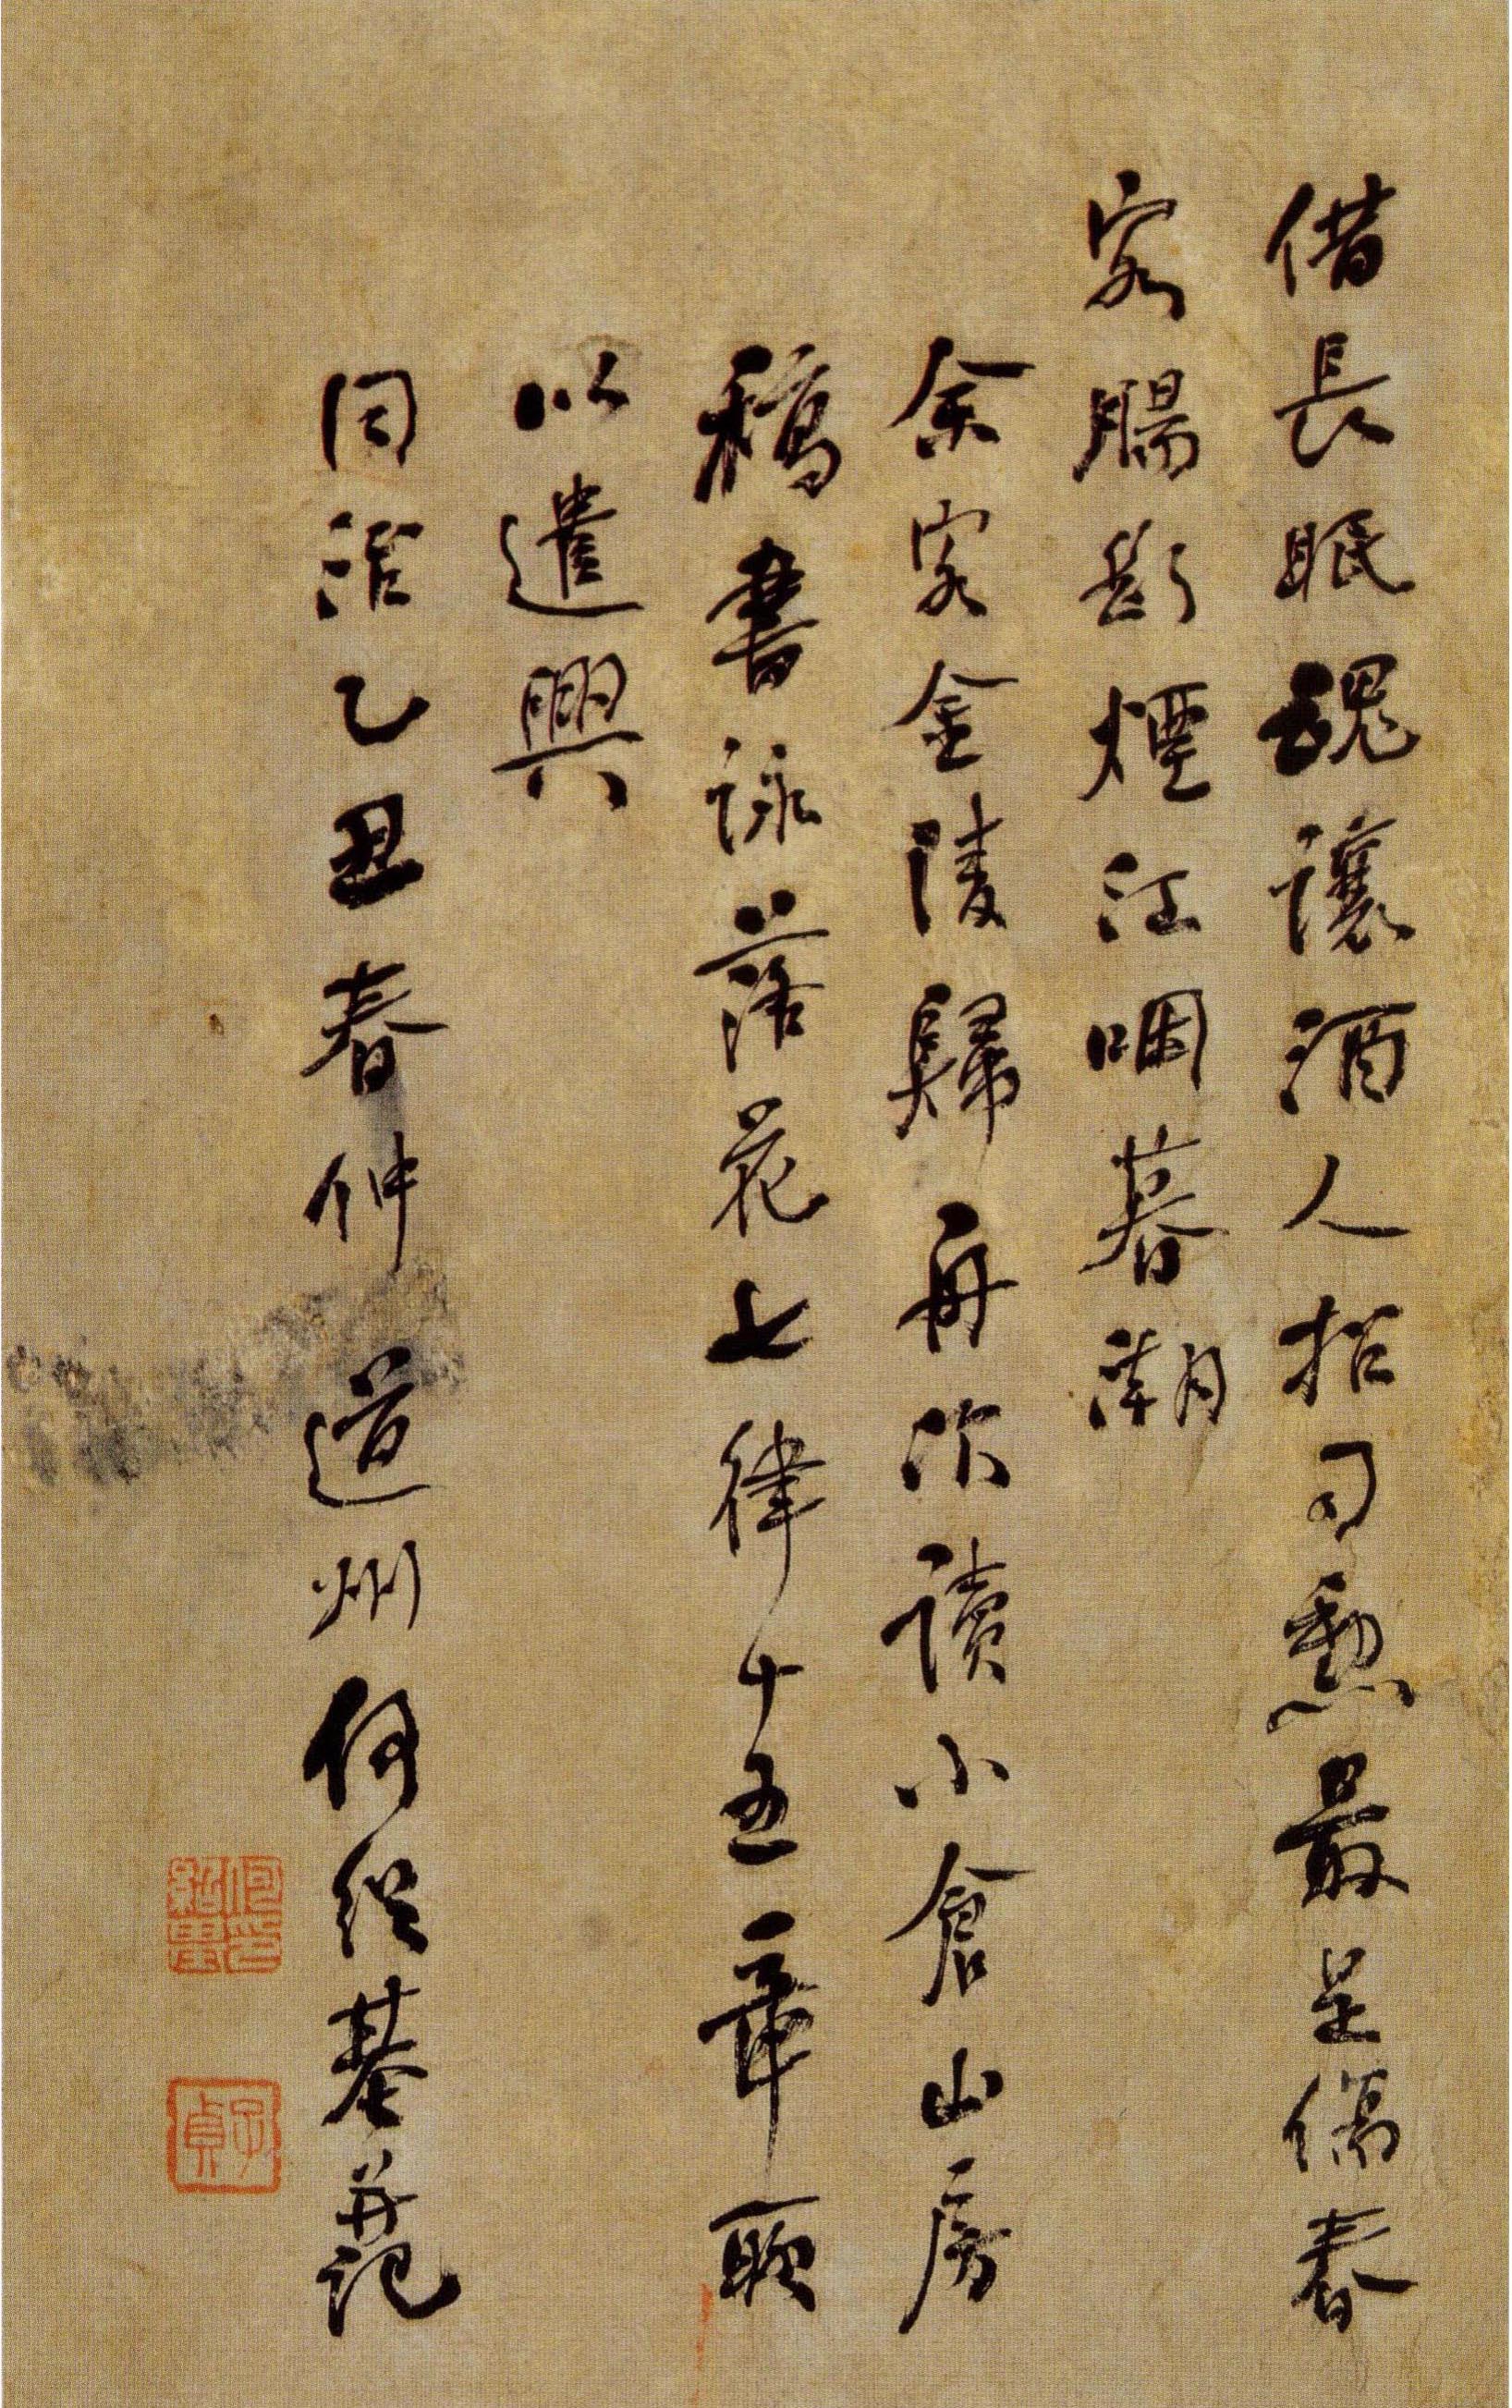 借長眠魂讓酒人招司勳最是傷春
客腸斷煙江咽暮潮
余客金陵歸舟次讀小倉山房
稿書詠落花七律十五章聊
以遣興
同治乙丑春仲道州何紹基并記
子貞